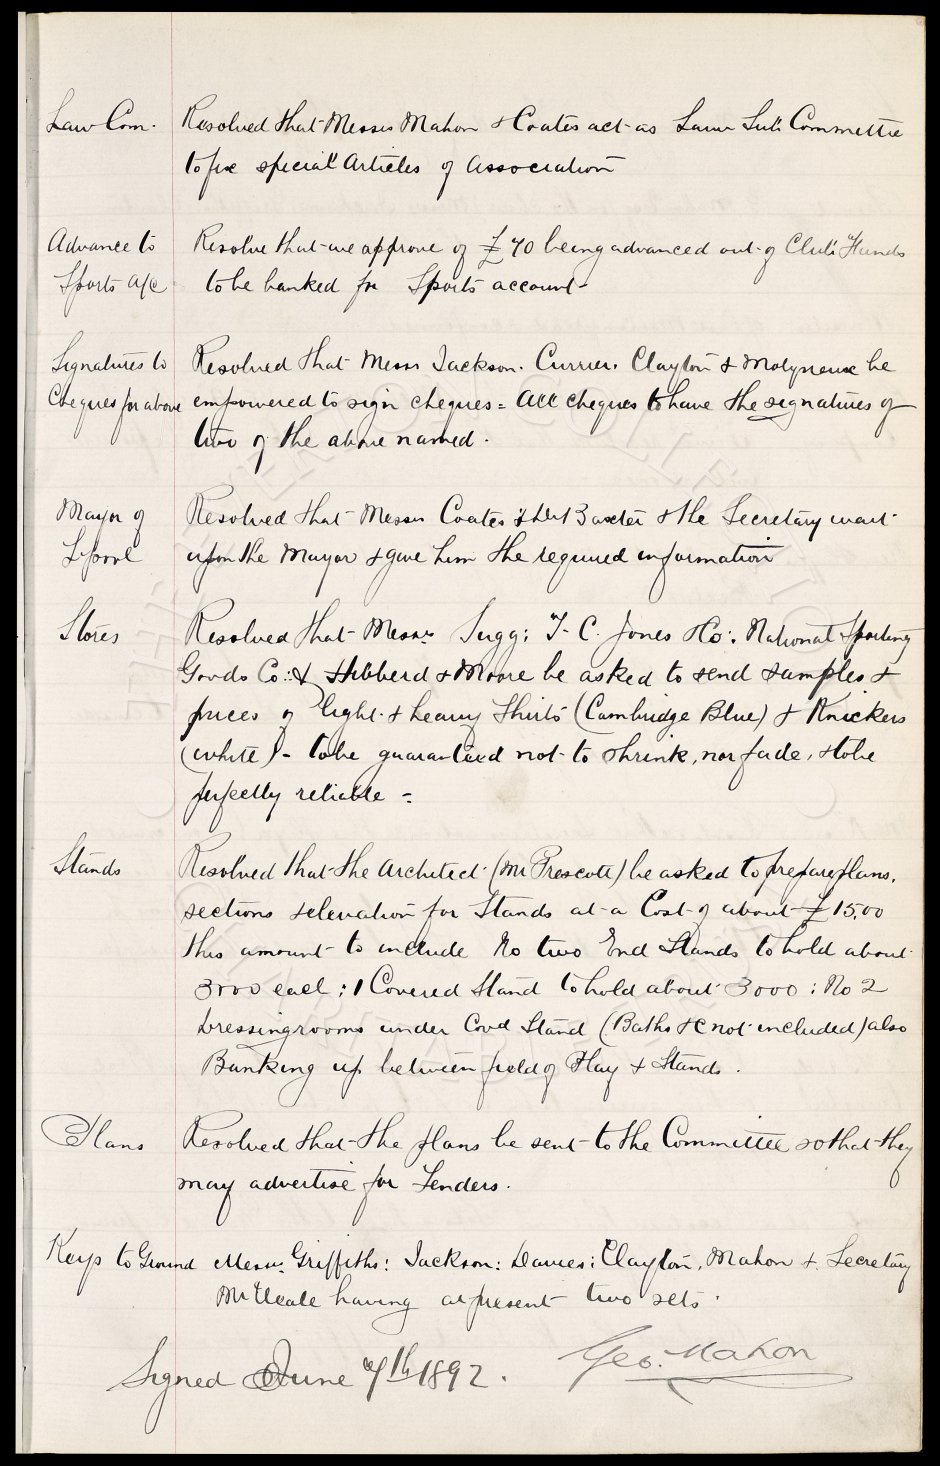 Law Com. Resolved that Messrs Mahon & Coates act as Law Sub Committee
to fix special Articles of Association
Advance to Resolve that we approve of £70 being advanced out of Club Funds
Sports a/c to be banked for Sports account
Signatures to Resolved that Messrs Jackson. Currier. Clayton & Molyneux be
Cheques for above empowered to sign cheques = All cheques to have the signatures of
two of the above named.
Mayor of Resolved that Messrs Coates & Dr Baxter & the Secretary wait
L'pool upon the Mayor & give him the required information
Stores Resolved that Messrs Sugg; T. C. Jones & Co: National Sporting
Goods Co: & Hibberd & Moore be asked to send samples &
prices of light & heavy Shirts (Cambridge Blue) & Knickers
(white) - to be guaranteed not to shrink, nor fade, & to be
perfectly reliable =
Stands Resolved that the Architect (Mr Prescott) be asked to prepare plans,
sections & elevation for Stands at a Cost of about £1500
this amount to include No two End Stands to hold about
3000 each; 1 Covered Stand to hold about 3000: No 2
Dressingrooms under Covd Stand (Baths &c not included) also
Banking up between field of Play & Stands.
Plans Resolved that the plans be sent to the Committee so that they
may advertise for Tenders.
Keys to Ground Messrs. Griffiths: Jackson: Davies: Clayton, Mahon & Secretary
Mr Neale having at present two sets.
Signed June 7th 1892. Geo. Mahon